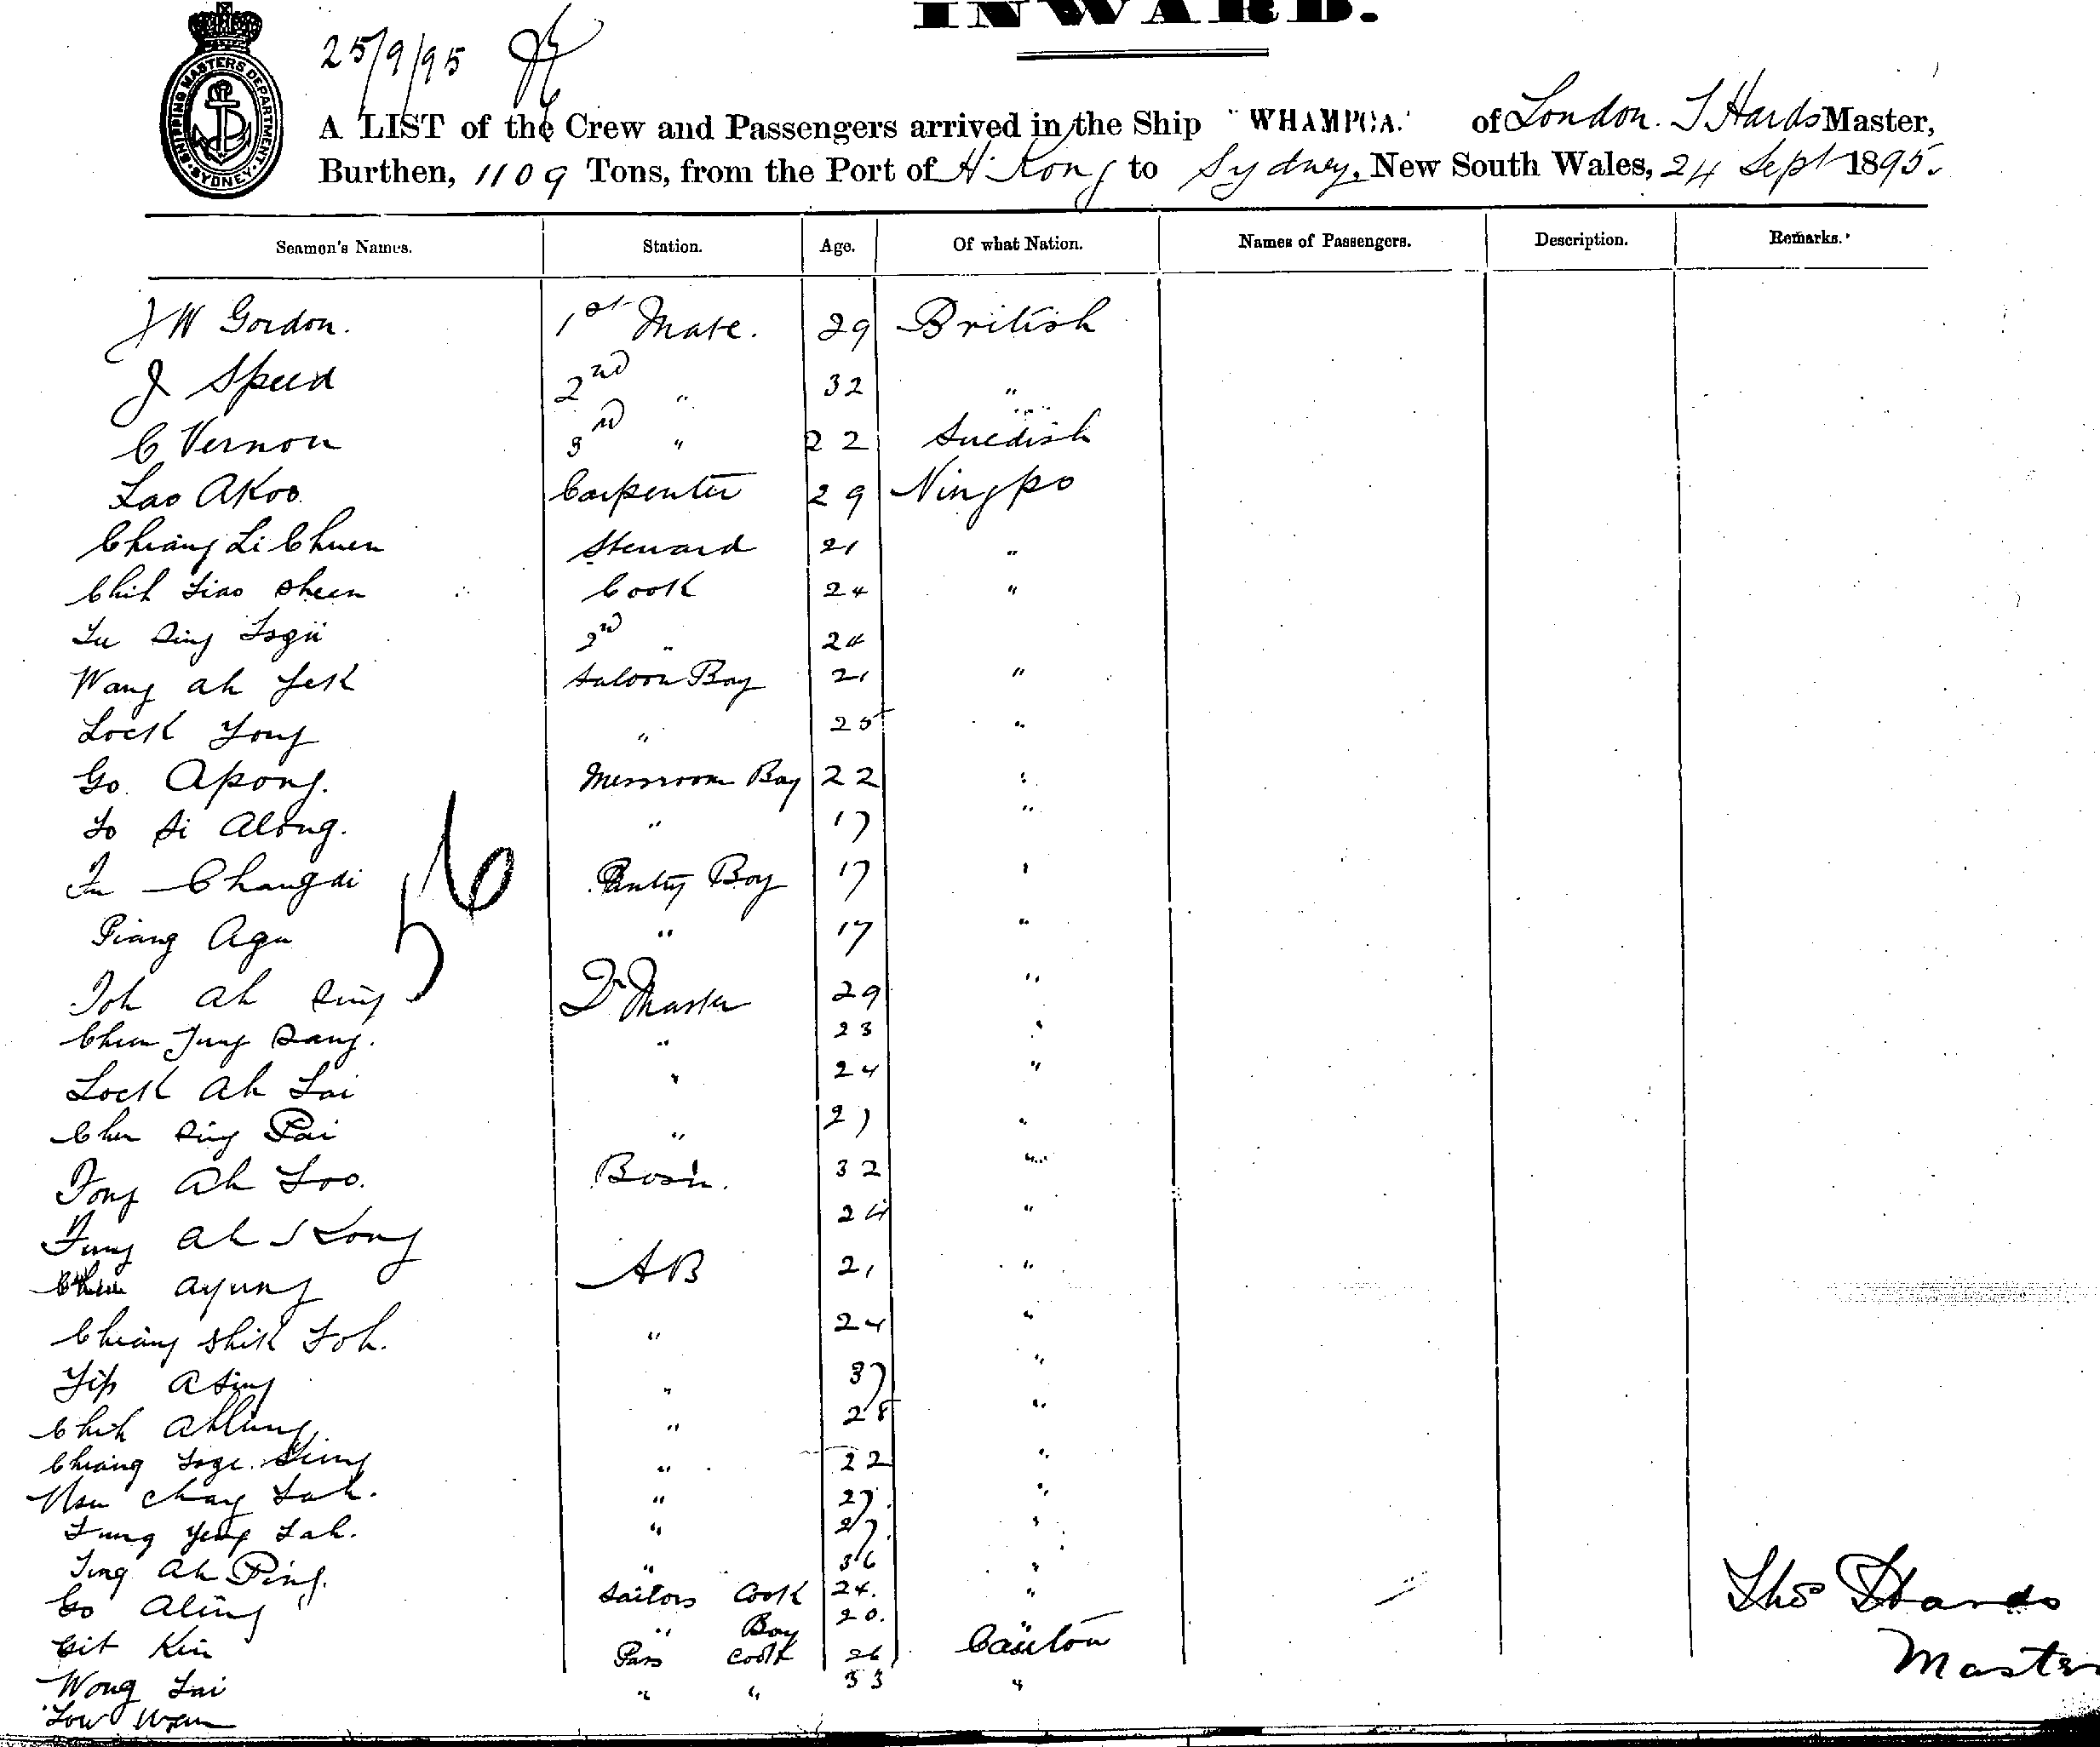 INWARD.
25/9/95
SHIPPING MASTERS DEPARTMENT SYDNEY
A LIST of the Crew and Passengers arrived in the Ship "WHAMPOA." of London. T Hards Master,
Burthen, 1109 Tons, from the Port of H. Kong to Sydney, New South Wales, 24 Sept 1895.
Seamen's Names. Station. Age. Of what Nation. Names of Passengers. Description. Remarks.
J W Gordon. 1st Mate. 29 British
J Speed 2nd " 32 "
C Vernon 3rd " 22 Swedish
Lao Akoo Carpenter 29 Ningpo
Chiang Li Chuen Steward 21 "
Chih Liao Sheen Cook 24 "
Sing 2nd " 24
Wang ah Saloon Boy 21 "
Lock Yong " 25 "
Go Apong. Messroom Boy 22 "
Si Along. " 17 "
Changdi Pantry Boy 17 "
Agu " 17 "
56
ah Sing Qr Master 29 "
" 23 "
Lock ah Lai " 24 "
Sing Pai " 27 "
Tong ah Loo. Bos'n. 32 "
ah Kong 24 "
ayung AB 21 "
Chiang Shih Foh. " 24 "
Yip asing " 37 "
Chih " 28 "
Chiang " 22 "
" 27. "
Lah. " 27. "
ah Ping. " 36 "
Go Aling Sailors Cook 24. "
Kin " Boy 20. "
Wong Lai Pass Cook 26 Canton
Low " " 33 "
Thos Hards
Master